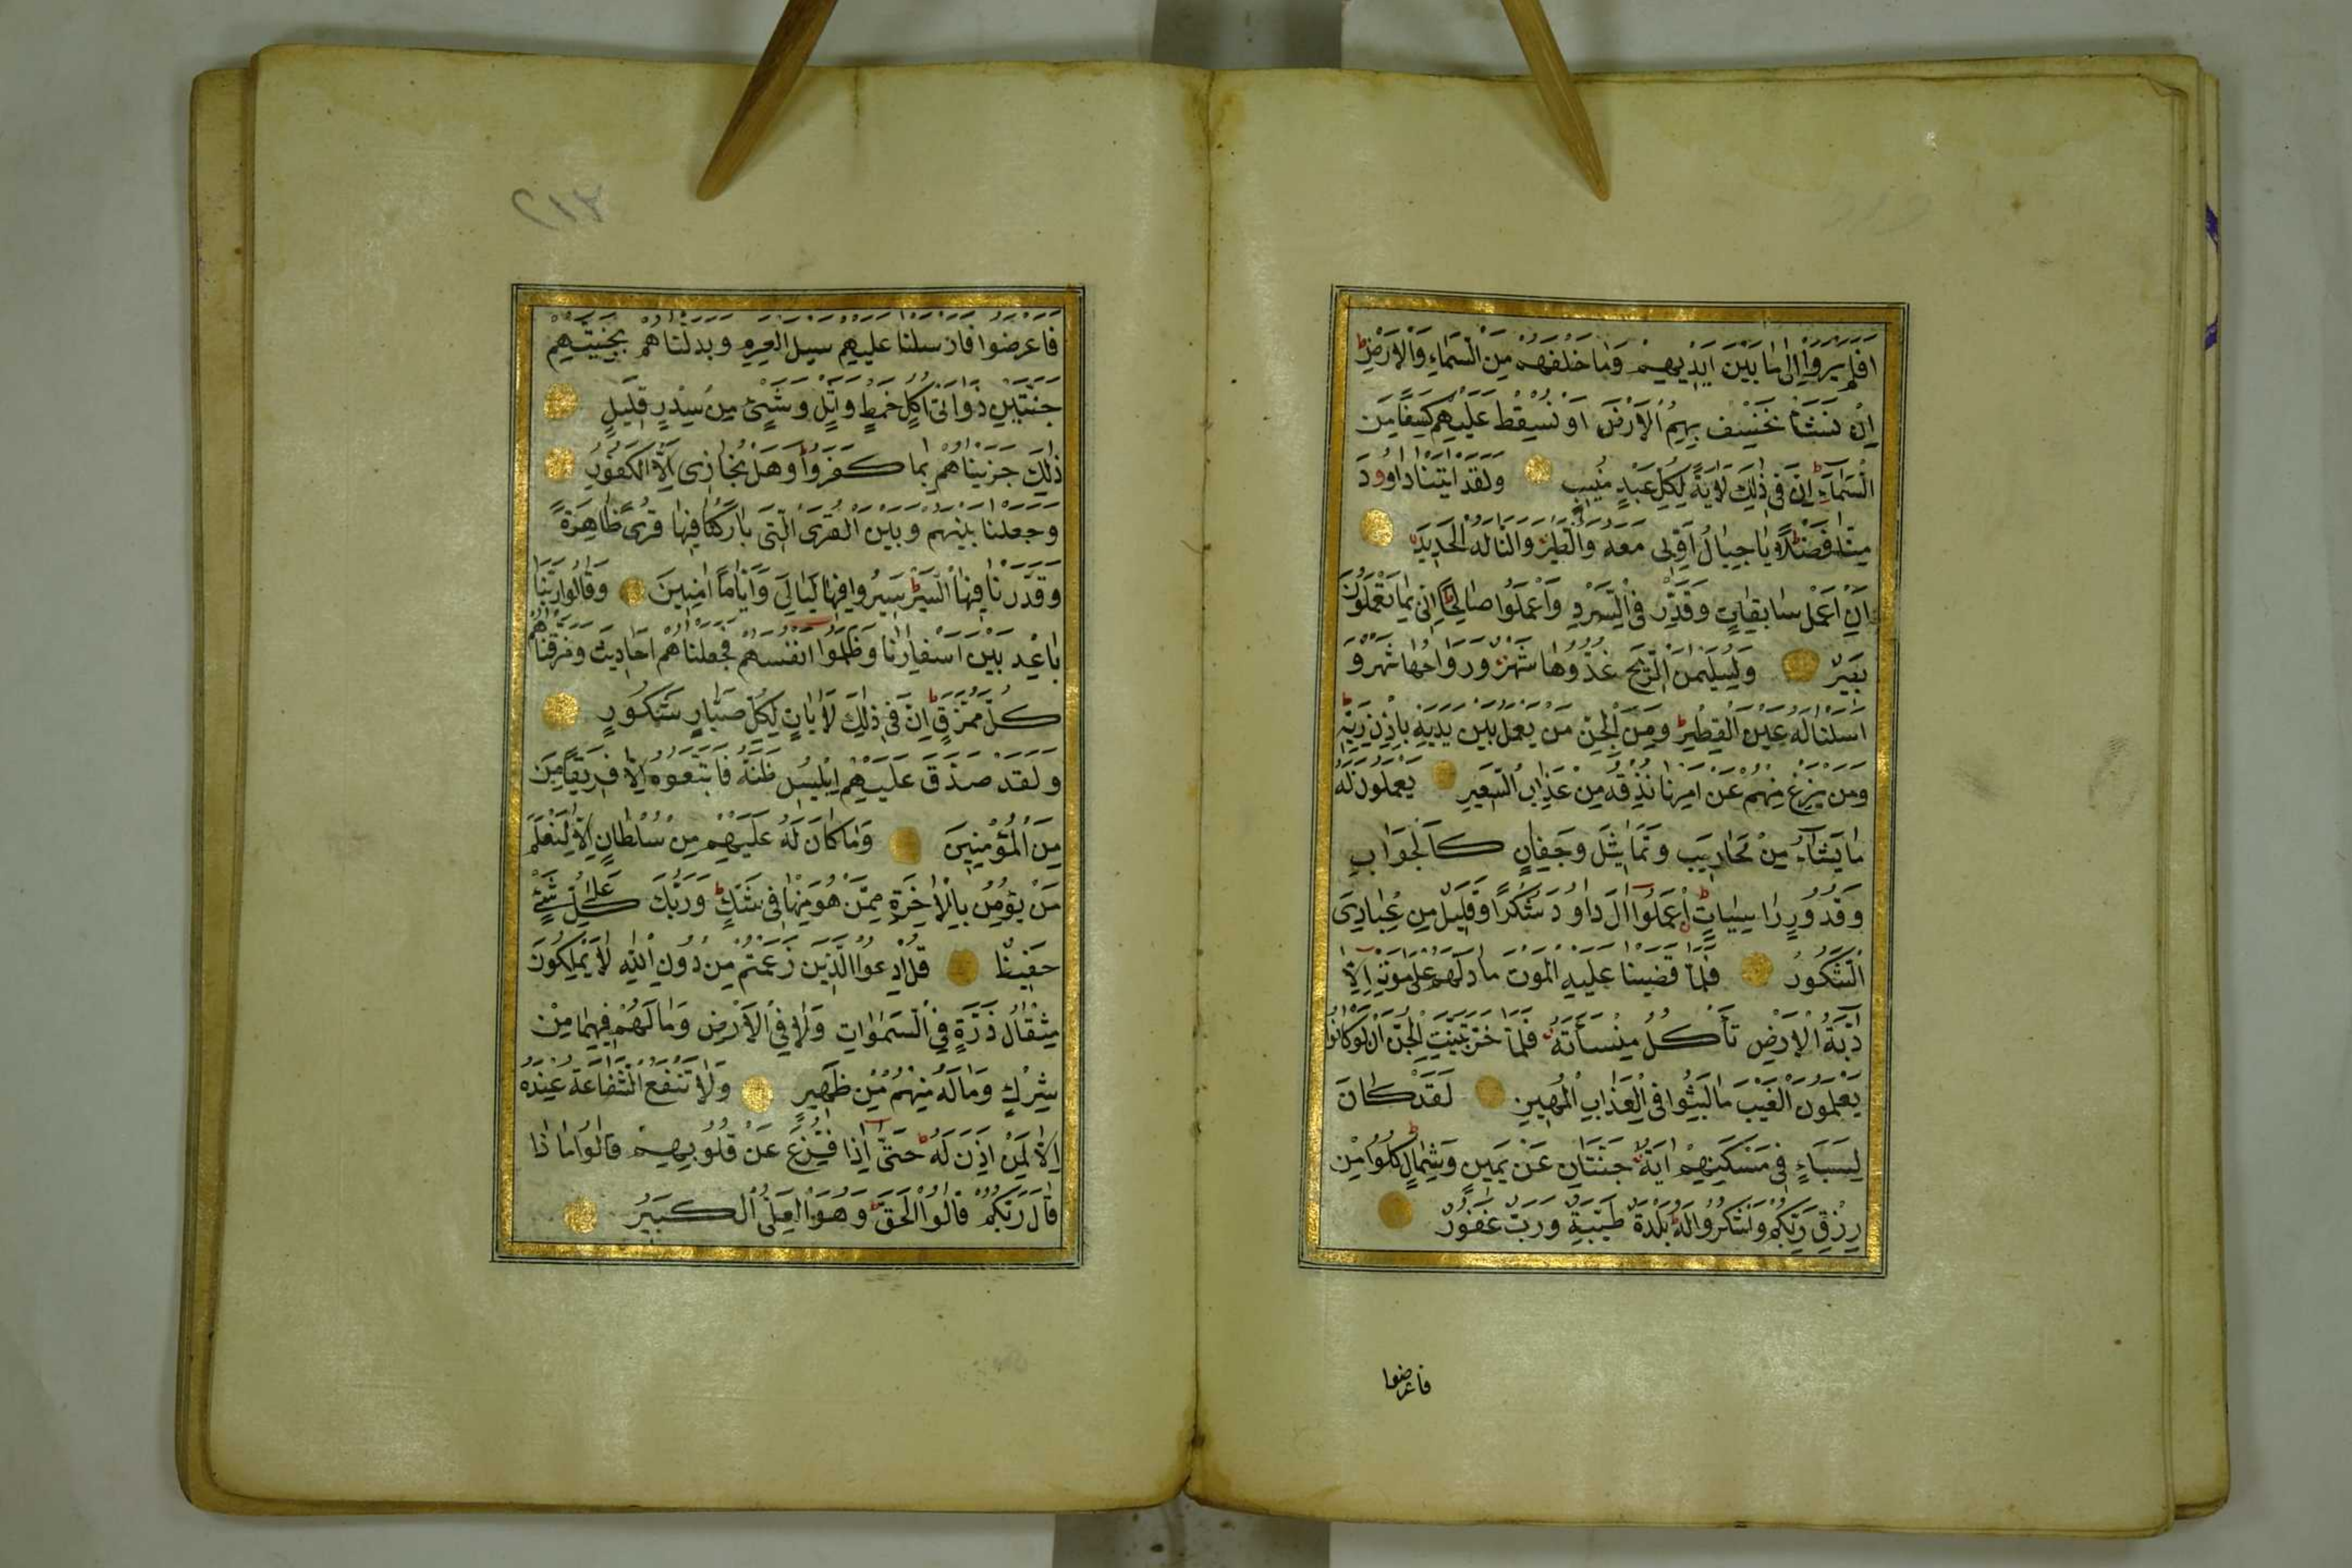 افلم يروا الى ما بين ايديهم وما خلفهم من السماء والارض
ان نشأ نخسف بهم الارض او نسقط عليهم كسفا من
السماء ان في ذلك لاية لكل عبد منيب ولقد اتينا داوود
منا فضلا يا جبال اوبي معه والطير والنا له الحديد
ان اعمل سابغات وقدر في السرد واعملوا صالحا اني بما تعملون
بصير ولسليمن الريح غدوها شهر ورواحها شهر و
اسلنا له عين القطر ومن الجن من يعمل بين يديه باذن ربه
ومن يزغ منهم عن امرنا نذقه من عذاب السعير يعملون له
ما يشاء من محاريب وتماثيل وجفان كالجواب
وقدور راسيات اعملوا ال داود شكرا وقليل من عبادي
الشكور فلما قضينا عليه الموت ما دلهم على موته الا
دابة الارض تأكل منسأته فلما خر تبينت الجن ان لو كانوا
يعلمون الغيب ما لبثوا في العذاب المهين لقد كان
لسباء في مسكنهم اية جنتان عن يمين وشمال كلوا من
رزق ربكم واشكروا له بلدة طيبة ورب غفور
فاعرضوا
٢١٣
فاعرضوا فارسلنا عليهم سيل العرم وبدلناهم بجنتيهم
جنتين ذواتى اكل خمط واثل وشئ من سدر قليل
ذلك جزيناهم بما كفروا وهل نجازى الا الكفور
وجعلنا بينهم وبين القرى التى باركنا فيها قرى ظاهرة
وقدرنا فيها السير سيروا فيها ليالى واياما امنين وقالوا ربنا
باعد بين اسفارنا وظلموا انفسهم فجعلناهم احاديث ومزقناهم
كل ممزق ان في ذلك لايات لكل صبار شكور
ولقد صدق عليهم ابليس ظنه فاتبعوه الا فريقا من
من المؤمنين وما كان له عليهم من سلطان الا لنعلم
من يؤمن بالاخرة ممن هو منها في شك وربك على كل شئ
حفيظ قل ادعوا الذين زعمتم من دون الله لا يملكون
مثقال ذرة في السموات ولا في الارض وما لهم فيهما من
شرك وما له منهم من ظهير ولا تنفع الشفاعة عنده
الا لمن اذن له حتى اذا فزع عن قلوبهم قالوا ماذا
قال ربكم قالوا الحق وهو العلى الكبير